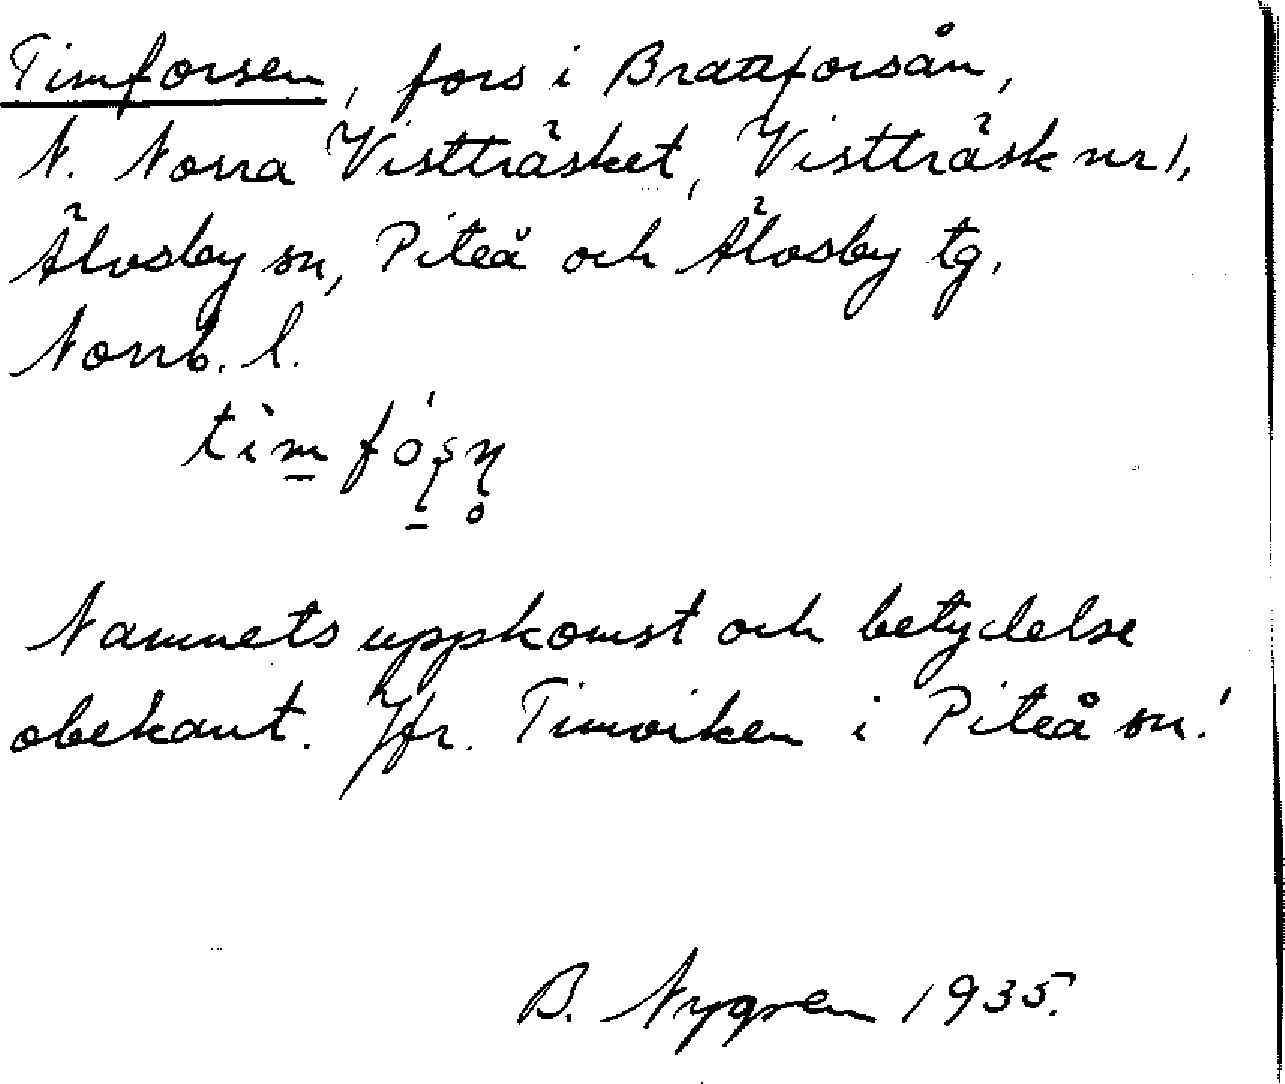 Timforsen, fors i Brattforsån,
N. Norra Vistträsket, Vistträsk nr 1,
Älvsby sn, Piteå och Älvsby tg,
Norrb. l.
tìm̠ fó̠ʂɳ̥
Namnets uppkomst och betydelse
obekant. Jfr. Timviken i Piteå sn.!
B. Nygren 1935.